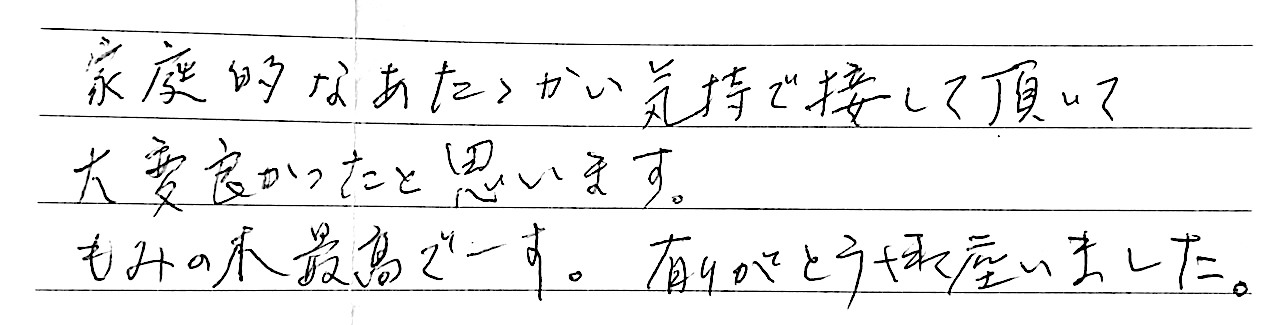 家庭的なあたゝかい気持で接して頂いて
大変良かったと思います。
もみの木最高でーす。 有りがとう御座いました。